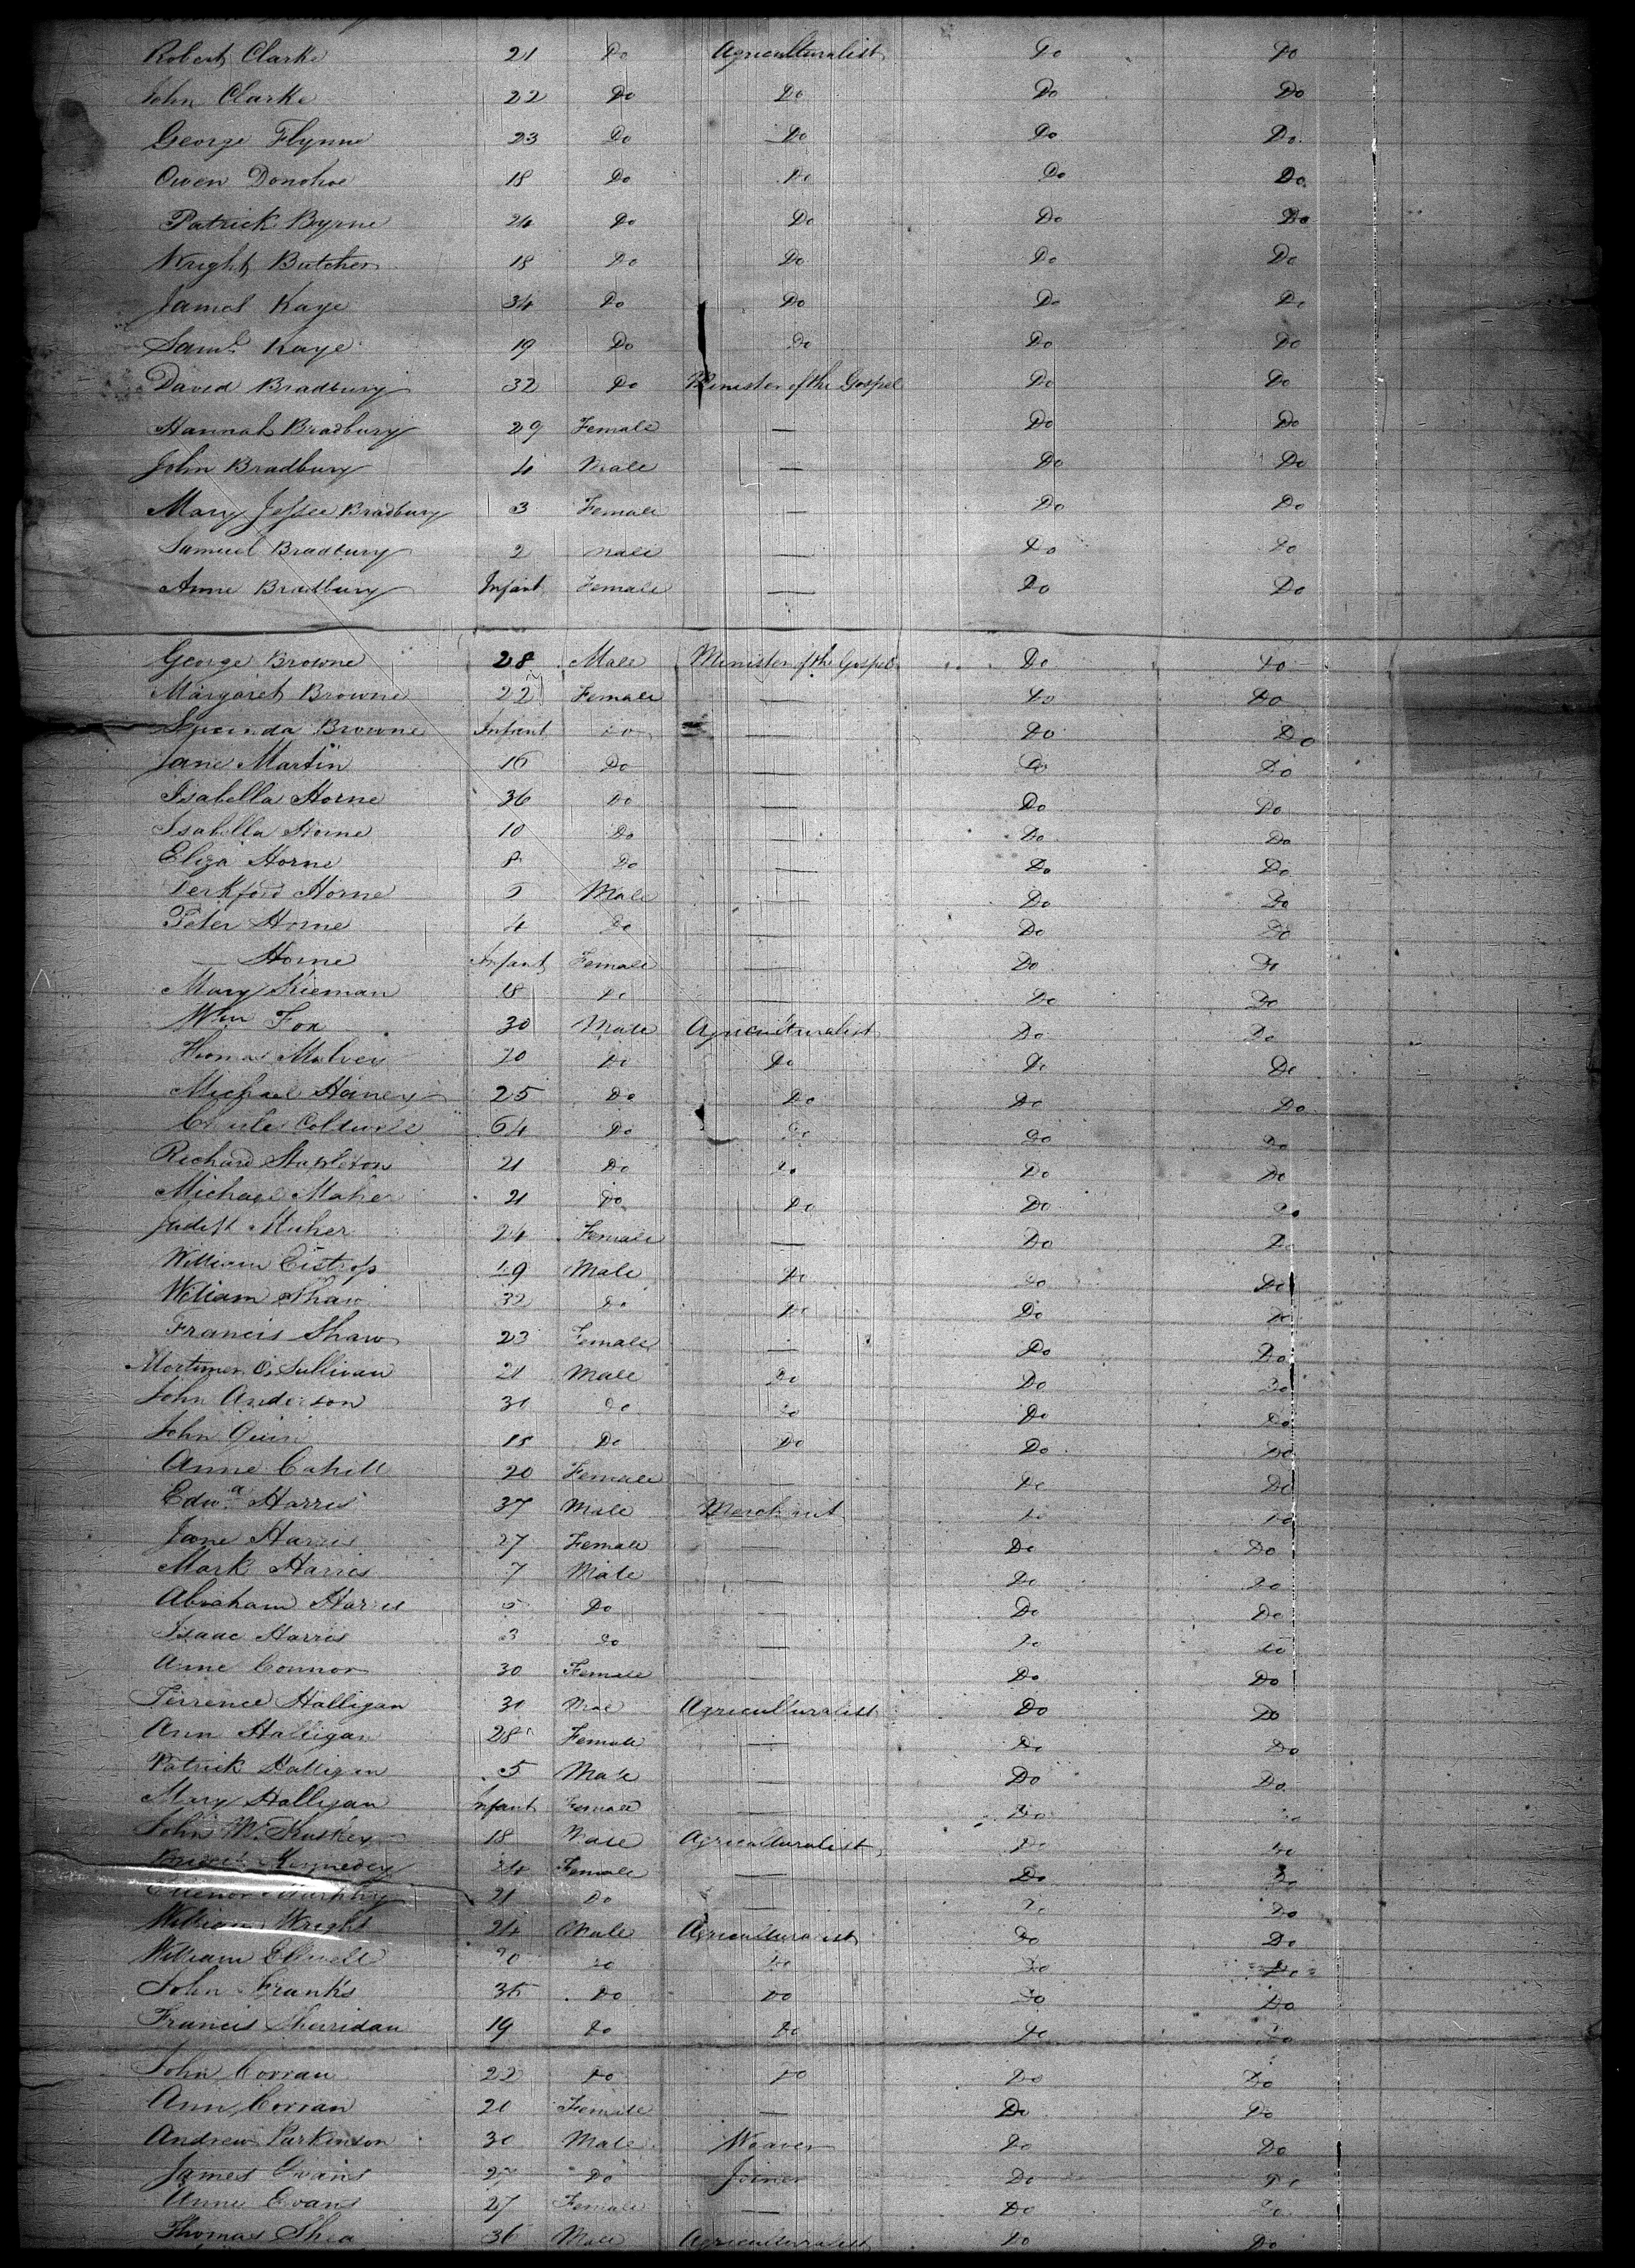 Robert Clarke 21 Do Agriculturalist Do Do
John Clarke 22 Do Do Do Do
George Flynne 23 Do Do Do Do
Owen Donohoe 18 Do Do Do Do
Patrick Byrne 24 Do Do Do Do
Wright Butcher 18 Do Do Do Do
James Kaye 34 Do Do Do Do
Saml Kaye 19 Do Do Do Do
David Bradbury 32 Do Minister of the Gospel Do Do
Hannah Bradbury 29 Female — Do Do
John Bradbury 4 Male — Do Do
Mary Jessee Bradbury 3 Female — Do Do
Samuel Bradbury 2 Male — Do Do
Anne Bradbury Infant Female — Do Do
George Browne 28 Male Minister of the Gospel Do Do
Margaret Browne 22 Female — Do Do
Browne Infant Do — Do Do
Jane Martin 16 Do — Do Do
Isabella Horne 36 Do — Do Do
Isabella Horne 10 Do — Do Do
Eliza Horne 8 Do — Do Do
Horne 5 Male — Do Do
Peter Horne 4 Do — Do Do
— Horne Infant Female — Do Do
Mary Kieman 18 Do — Do Do
Wm Fox 30 Male Agriculturalist Do Do
Thomas Malvey 20 Do Do Do Do
Michael Haney 25 Do Do Do Do
Charles Coldwell 64 Do Do Do Do
Richard Stapleton 21 Do Do Do Do
Michael Maher 21 Do Do Do Do
Judith Maher 24 Female — Do Do
William 49 Male Do Do Do
William Shaw 32 Do Do Do Do
Francis Shaw 23 Female — Do Do
Mortimer O'Sullivan 21 Male Do Do Do
John Anderson 31 Do Do Do Do
John Quin 18 Do Do Do Do
Anne Cahill 20 Female — Do Do
Edwd Harris 37 Male Merchant Do Do
Jane Harris 27 Female — Do Do
Mark Harris 7 Male — Do Do
Abraham Harris 5 Do — Do Do
Isaac Harris 3 Do — Do Do
Anne Connor 30 Female — Do Do
Terrence Halligan 31 Male Agriculturalist Do Do
Ann Halligan 28 Female — Do Do
Patrick Halligan 5 Male — Do Do
Mary Halligan Infant Female — Do Do
John 18 Male Agriculturalist Do Do
Kennedy 24 Female — Do Do
Ellenor Murphy 21 Do — Do Do
William Wright 24 Male Agriculturalist Do Do
William 20 Do Do Do Do
John Franks 35 Do Do Do Do
Francis Sherridan 19 Do Do Do Do
John Corran 22 Do Do Do Do
Ann Corran 21 Female — Do Do
Andrew Parkinson 30 Male Weaver Do Do
James Evans 27 Do Joiner Do Do
Anne Evans 27 Female — Do Do
Thomas Shea 36 Male Agriculturalist Do Do